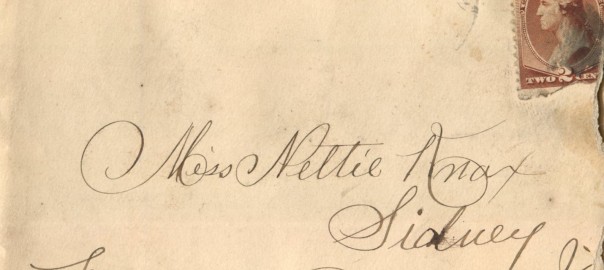 TWO 2 CEN
Miss Nettie Knox
Sidney